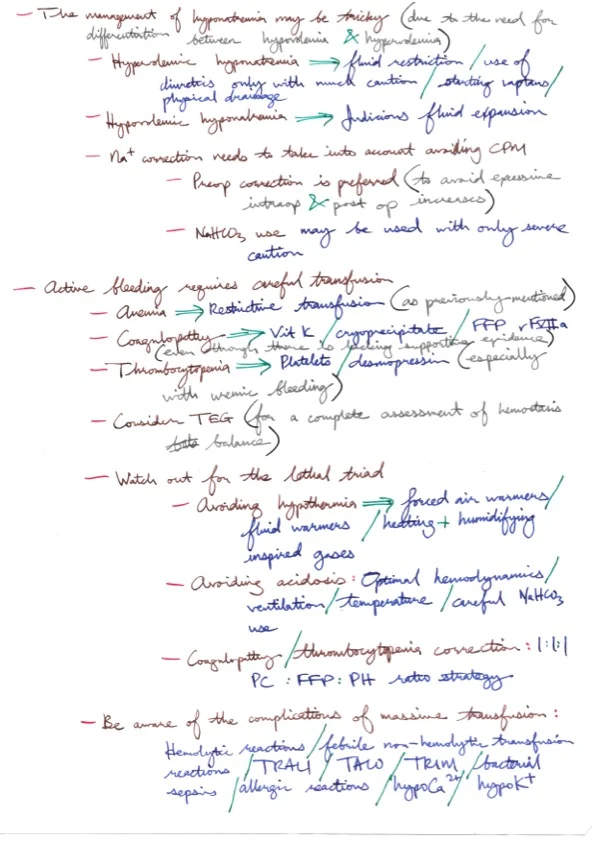 — The management of hyponatremia may be tricky (due to the need for
differentiation between hypovolemia & hypervolemia)
— Hypervolemic hyponatremia ⟹ fluid restriction / use of
diuretics only with much caution / starting vaptans /
physical drainage
— Hypovolemic hyponatremia ⟹ Judicious fluid expansion
— Na+ correction needs to take into account avoiding CPM
— Preop correction is preferred (to avoid excessive
intraop & post op increases)
— NaHCO3 use may be used with only severe
caution
— Active bleeding requires careful transfusion
— Anemia ⟹ Restrictive transfusion (as previously-mentioned)
— Coagulopathy ⟹ Vit K / cryoprecipitate / FFP / rFVIIa
(even although there is lacking supporting evidence)
— Thrombocytopenia ⟹ Platelets / desmopressin (especially
with uremic bleeding)
— Consider TEG (for a complete assessment of hemostasis
balance)
— Watch out for the lethal triad
— Avoiding hypothermia ⟹ forced air warmers /
fluid warmers / heating + humidifying
inspired gases
— Avoiding acidosis : Optimal hemodynamics /
ventilation / temperature / careful NaHCO3
use
— Coagulopathy / thrombocytopenia correction : 1:1:1
PC : FFP : PH ratio strategy
— Be aware of the complications of massive transfusion :
Hemolytic reactions / febrile non-hemolytic transfusion
reactions / TRALI / TACO / TRIM / bacterial
sepsis / allergic reactions / hypoCa2+ / hypoK+